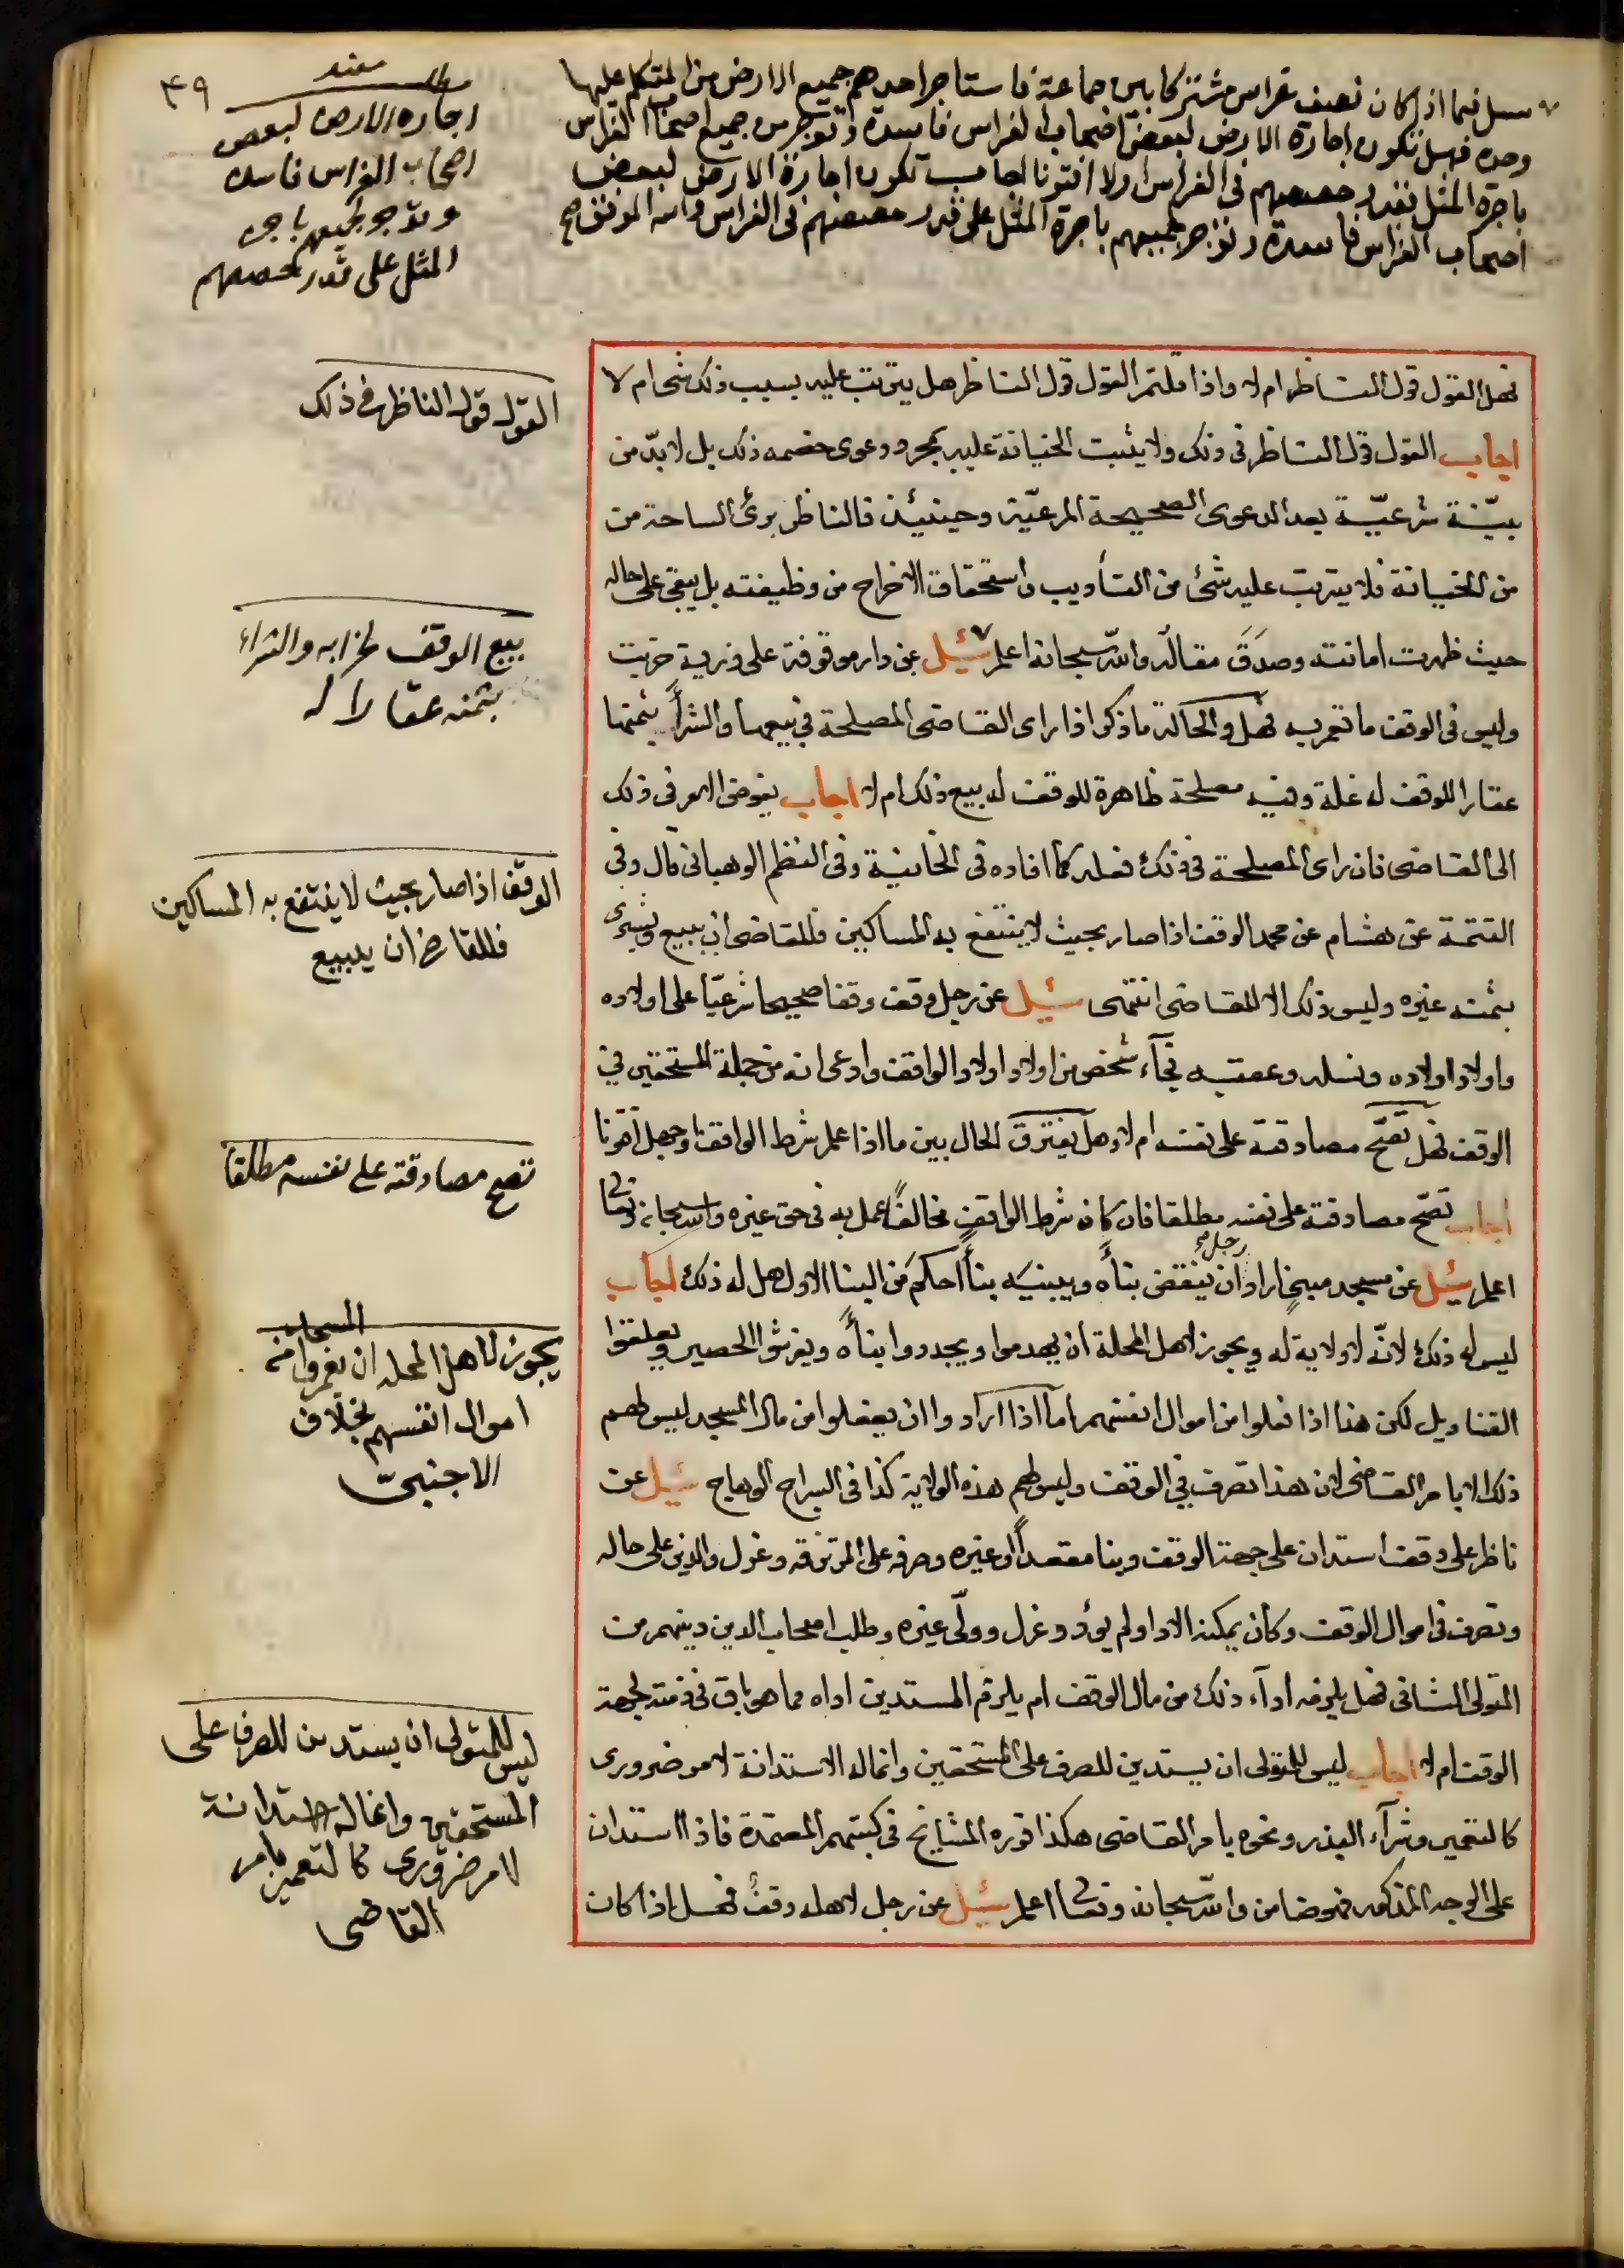 ٤٩
سئل فيما اذا كان نصف غراس مشتركا بين جماعة فاستاجر احدهم جميع الارض من المتكلم عليها
وحده فهل تكون اجارة الارض لبعض اصحاب الغراس فاسدة وتوجر من جميع اصحاب الغراس
باجرة المثل بقدر حصصهم فى الغراس اولا افتونا اجاب تكون اجارة الارض لبعض
اصحاب الغراس فاسدة وتوجر لجميعهم باجرة المثل على قدر حصصهم فى الغراس والله الموفق صح
مطلب
اجارة الارض لبعض
اصحاب الغراس فاسدة
وتوجر لجميعهم باجرة
المثل على قدر حصصهم
فهل القول قول الناظر ام لا واذا قلتم القول قول الناظر هل يترتب عليه بسبب ذلك شئ ام لا
اجاب القول قول الناظر فى ذلك ولا يثبت الخيانة عليه بمجرد دعوى خصمه ذلك بل لا بدّ من
بيّنة شرعيّة بعد الدعوى الصحيحة المرعيّة وحينئذ فالناظر برئ الساحة من
من الخيانة فلا يترتب عليه شئ من التأديب واستحقاق الاخراج من وظيفته بل يبقى على حاله
حيث ظهرت امانته وصدق مقاله والله سبحانه اعلم سئيل عن دار موقوفة على ذرية خربت
وليس فى الوقف ما تعمر به فهل والحالة ما ذكر اذا راى القاضى المصلحة فى بيعها والشرأ بثمنها
عقارا للوقف له غلة وفيه مصلحة ظاهرة للوقف له بيع ذلك ام لا اجاب يفوض الامر فى ذلك
الى القاضى فان راى المصلحة فى ذلك فعله كما افاده فى الخانية وفى النظم الوهبانى قال وفى
التتمة عن هشام عن محمد الوقف اذا صار بحيث لا ينتفع به المساكين فللقاضى ان يبيع ويشترى
بثمنه غيره وليس ذلك الا للقاضى انتهى سئيل عن رجل وقف وقفا صحيحا شرعيّا على اولاده
واولاد اولاده ونسله وعقبه فجآء شخص من اولاد اولاد الواقف وادعى انه من جملة المستحقين فى
الوقف فهل تصحّ مصادقته على نفسه ام لا وهل يفترق الحال بين ما اذا علم شرط الواقف او جهل افتونا
اجاب تصحّ مصادقته على نفسه مطلقا فان كان شرط الواقف مخالفًا عمل به فى حق غيره والله سبحانه وتعالى
اعلم سئيل عن مسجد مبنى اراد رجل ان ينقض بنأه ويبنيه بنأ احكم من البنا الاول هل له ذلك اجاب
ليس له ذلك لانّه لا ولاية له ويجوز لاهل المحلة ان يهدموا ويجددوا بنأه ويفرشوا الحصير ويعلقوا
القناديل لكن هذا اذا فعلوا من اموال انفسهم اما اذا ارادوا ان يفعلوا من مال المسجد ليس لهم
ذلك الا بامر القاضى لان هذا تصرف فى الوقف وليس لهم هذه الولاية كذا فى السراج الوهاج سئيل عن
ناظر على وقف استدان على جهة الوقف وبنا مقعداً او غيره وصرفه على المرتزقه وعزل والدين على حاله
وتصرف فى اموال الوقف وكان يمكنه الادا ولم يؤد وعزل وولّى غيره وطلب اصحاب الدين دينهم من
المتولى الثانى فهل يلزمه ادآء ذلك من مال الوقف ام يلزم المستدين اداه مما هو باق فى ذمته لجهة
الوقف ام لا اجاب ليس للمتولى ان يستدين للصرف على المستحقين وانما له الاستدانة لامر ضرورى
كالتعمير وشرآء البذر ونحوه بامر القاضى هكذا قرره المشايخ فى كتبهم المعتمدة فاذا استدان
على الوجه المذكور فهو ضامن والله سبحانه وتعالى اعلم سئيل عن رجل لاهله وقف فهل اذا كان
القول قول الناظر فى ذلك
بيع الوقف لخرابه والشراء
بثمنه عقارا له
الوقف اذا صار بحيث لا ينتفع به المساكين
فللقاضى ان يبيع
تصح مصادقته على نفسه مطلقا
يجوز لاهل المحله ان يعمروا المسجد من
اموال انفسهم بخلاف
الاجنبىّ
ليس للمتولى ان يستدين للصرف على
المستحقين وانما له الاستدانة
لامر ضرورى كالتعمير بامر
القاضى